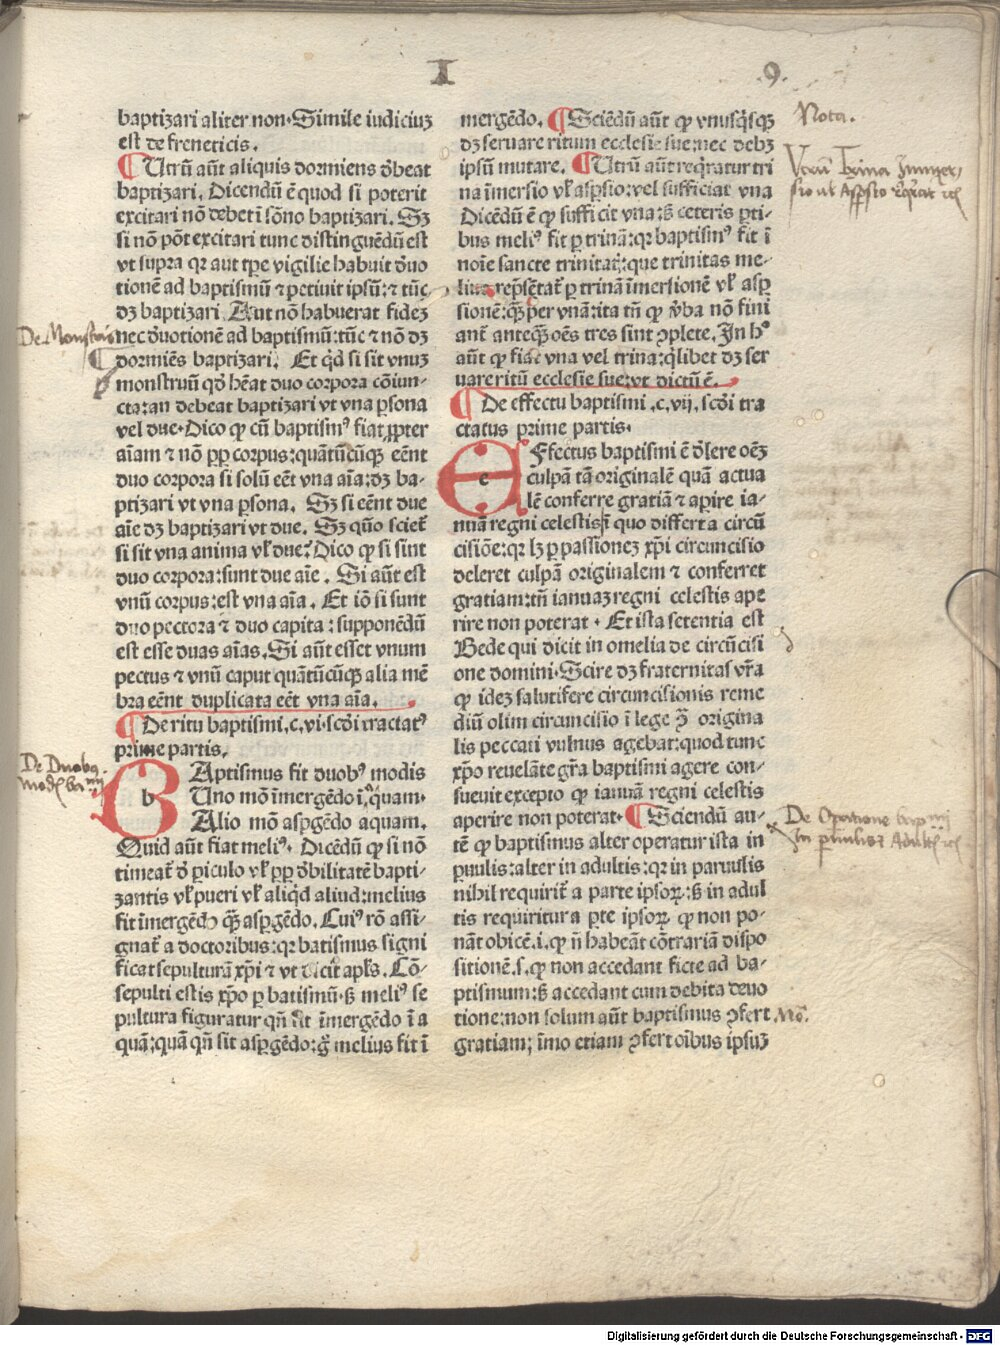 I
9.
baptizari aliter non. Simile iudiciuꝫ
est de freneticis.
¶ Utrū aūt aliquis dormiens dʼbeat
baptizari. Dicendū ē quod si poterit
excitari nō debet ī sōno baptizari. Sꝫ
si nō pōt excitari tunc distinguēdū est
vt supra qꝛ aut tp̄e vigilie habuit dʼuo
tionē ad baptismū ⁊ petiuit ipsū: ⁊ tūc
dꝫ baptizari. Aut nō habuerat fideꝫ
nec dʼuotionē ad baptismū: tūc ⁊ nō dꝫ
dormiēs baptizari. Et qͥd si sit vnuꝫ
monstruū qḋ hēat duo corpora cōiun-
cta: an debeat baptizari vt vna ꝑsona
vel due. Dico ꝙ cū baptismꝰ fiat ꝓpter
aīam ⁊ nō ꝓp corpus: quātūcūqꝫ eēnt
duo corpora si solū eēt vna aīa: dꝫ ba-
ptizari vt vna ꝑsona. Sꝫ si eēnt due
aīe dꝫ baptizari vt due. Sꝫ quō scietʳ
si sit vna anima vl̓ due? Dico ꝙ si sint
duo corpora: sunt due aīe. Si aūt est
vnū corpus: est vna aīa. Et iō si sunt
duo pectora ⁊ duo capita: supponēdū
est esse duas aīas. Si aūt esset vnum
pectus ⁊ vnū caput quātūcūqꝫ alia mē
bra eēnt duplicata eēt vna aīa.
¶ De ritu baptismi. c. vi. scḋi tractatꝰ
prime partis.
b
BAptismus fit duobꝰ modis
Uno mō īmergēdo ī aquam.
Alio mō aspgēdo aquam.
Quid aūt fiat meliꝰ. Dicēdū ꝙ si nō
timeatʳ dʼ ꝑiculo vl̓ ꝓp dʼbilitatē bapti-
zantis vl̓ pueri vl̓ aliqͥd aliud: melius
fit īmergēdo qͣꝫ asꝑgēdo. Cuiꝰ rō assi-
gnatʳ a doctoribus: qꝛ batismus signi
ficat sepulturā xp̄i ⁊ vt dicit apl̓s. Cō-
sepulti estis xp̄o ꝑ batismū. ß meliꝰ se
pultura figuratur qn̄ sit īmergēdo ī a
quā: quā qn̄ sit asꝑgēdo: gͦ melius fit ī
mergēdo. ¶ Sciēdū aūt ꝙ vnusqͥsqꝫ
dꝫ seruare ritum ecclesie sue: nec debꝫ
ipsū mutare. ¶ Utrū aūt reqͥratur tri
na īmersio vl̓ asꝑsio: vel sufficiat vna
Dicēdū ē ꝙ sufficit vna: ß ceteris ꝑti-
bus meliꝰ fit ꝑ trinā: qꝛ baptismꝰ fit ī
noīe sancte trinitatꝭ: que trinitas me-
lius rep̄sētatʳ ꝑ trinā īmersionē vl̓ asꝑ
sionē: qͣꝫ per vnā: ita tn̄ ꝙ vʼba nō fini
antʳ anteqͣꝫ oēs tres sint ꝯplete. In hͦ
aūt ꝙ fiat vna vel trina: qͥlibet dꝫ ser
uare ritū ecclesie sue: vt dictū ē.
¶ De effectu baptismi. c. vij. scḋi tra
ctatus prime partis.
e
EFfectus baptismi ē dʼlere oēꝫ
culpā tā originalē quā actua
lē conferre gratiā ⁊ aꝑire ia-
nuā regni celestis: ī quo differt a circū
cisiōe: qꝛ lꝫ ꝑ passioneꝫ xp̄i circuncisio
deleret culpā originalem ⁊ conferret
gratiam: tn̄ ianuaꝫ regni celestis ape
rire non poterat. Et ista sētentia est
Bede qui dicit in omelia de circūcisi
one domini. Scire dꝫ fraternitas vr̄a
ꝙ ideꝫ salutifere circuncisionis reme
diū olim circuncisio ī lege ꝯ̄ origina
lis peccati vulnus agebat: quod tunc
xp̄o reuelāte gr̄a baptismi agere con-
sueuit excepto ꝙ ianuā regni celestis
aperire non poterat. ¶ Sciendū au-
tē ꝙ baptismus alter operatur ista in
ꝑuulis: alter in adultis: qꝛ in paruulis
nihil requiritʳ a parte ipsoꝝ: ß in adul
tis requiritur a ꝑte ipsoꝝ ꝙ non po-
nāt obicē. i. ꝙ n̄ habeāt cōtrariā dispo
sitionē. s. ꝙ non accedant ficte ad ba-
ptismum: ß accedant cum debita deuo
tione: non solum aūt baptismus ꝯfert
gratiam; īmo etiam ꝯfert oībus ipsuꝫ
De Monstris
De Duobꝰ
modis
Nota.
Vtrū trina Immer-
sio ul Aspersio
De Operatione bap
In paruulis Adult
No.
Digitalisierung gefördert durch die Deutsche Forschungsgemeinschaft - DFG